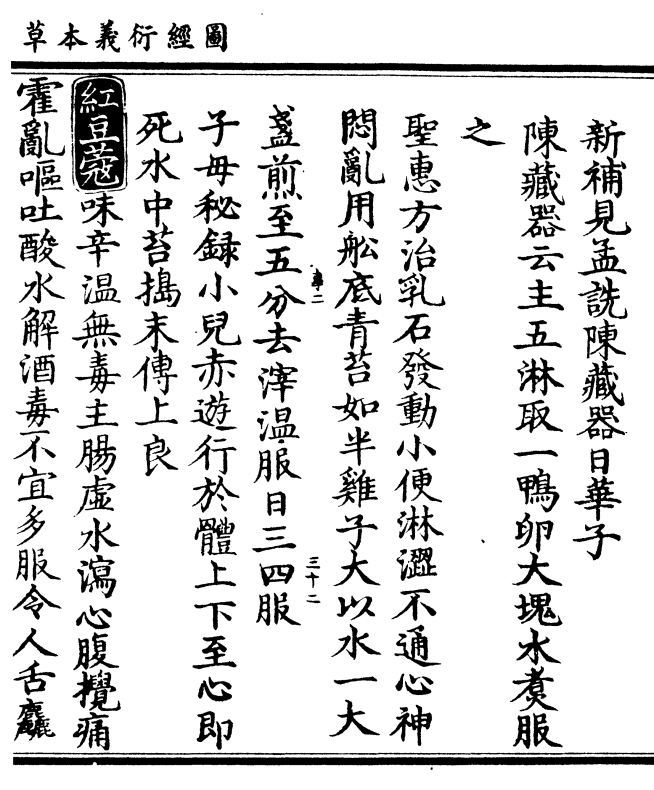 圖經衍義本草
新補見孟詵陳藏器日華子
陳藏器云主五淋取一鴨卵大塊水煑服
之
聖惠方治乳石發動小便淋澀不通心神
悶亂用舩底青苔如半雞子大以水一大
盞煎至五分去滓溫服日三四服
子母秘録小兒赤遊行於體上下至心即
死水中苔搗末傅上良
紅豆蔻味辛温無毒主腸虛水瀉心腹攪痛
霍亂嘔吐酸水解酒毒不宜多服令人舌麤
三十二